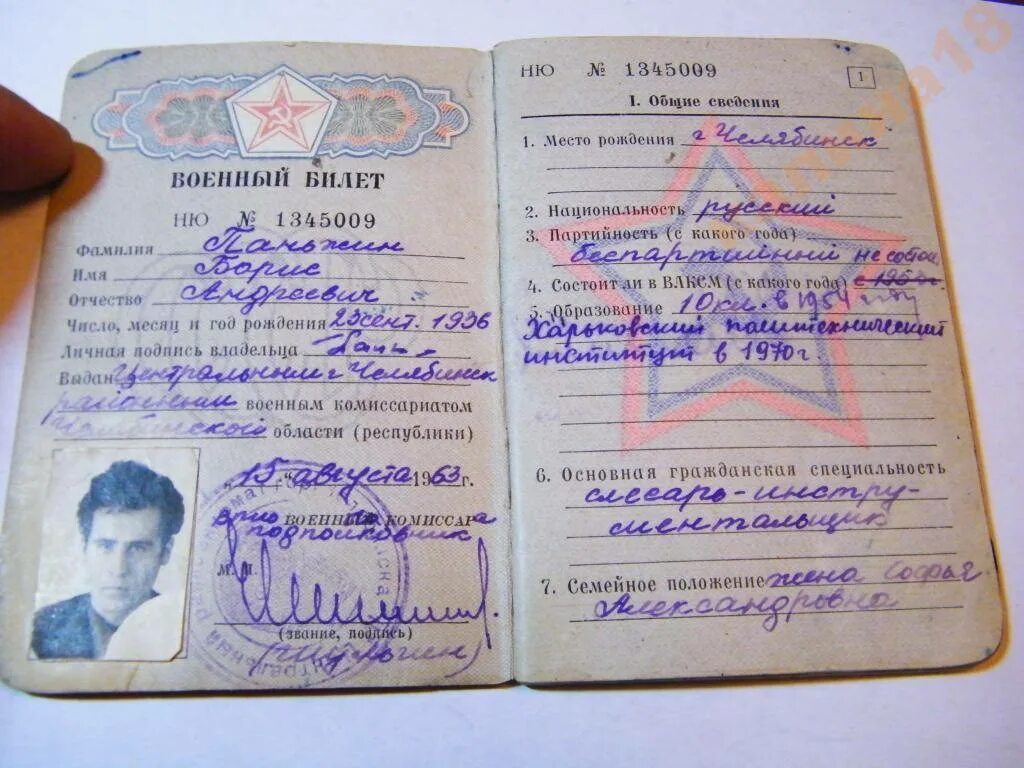 ВОЕННЫЙ БИЛЕТ
НЮ № 1345009
Фамилия Паньжин
Имя Борис
Отчество Андреевич
Число, месяц и год рождения 23 сент. 1936
Личная подпись владельца
Выдан Центральным г Челябинск
районным военным комиссариатом
области (республики)
"15" августа 1963 г.
врио военный комиссара
подполковник
М. П.
(звание, подпись)
НЮ № 1345009
1
I. Общие сведения
1. Место рождения г Челябинск
2. Национальность русский
3. Партийность (с какого года)
беспартийный
4. Состоит ли в ВЛКСМ (с какого года) не состои
5. Образование 10 кл. в 1954 году
Харьковский политехнический
институт в 1970 г
6. Основная гражданская специальность
слесарь-инстру-
ментальщик
7. Семейное положение жена Софья
Александровна